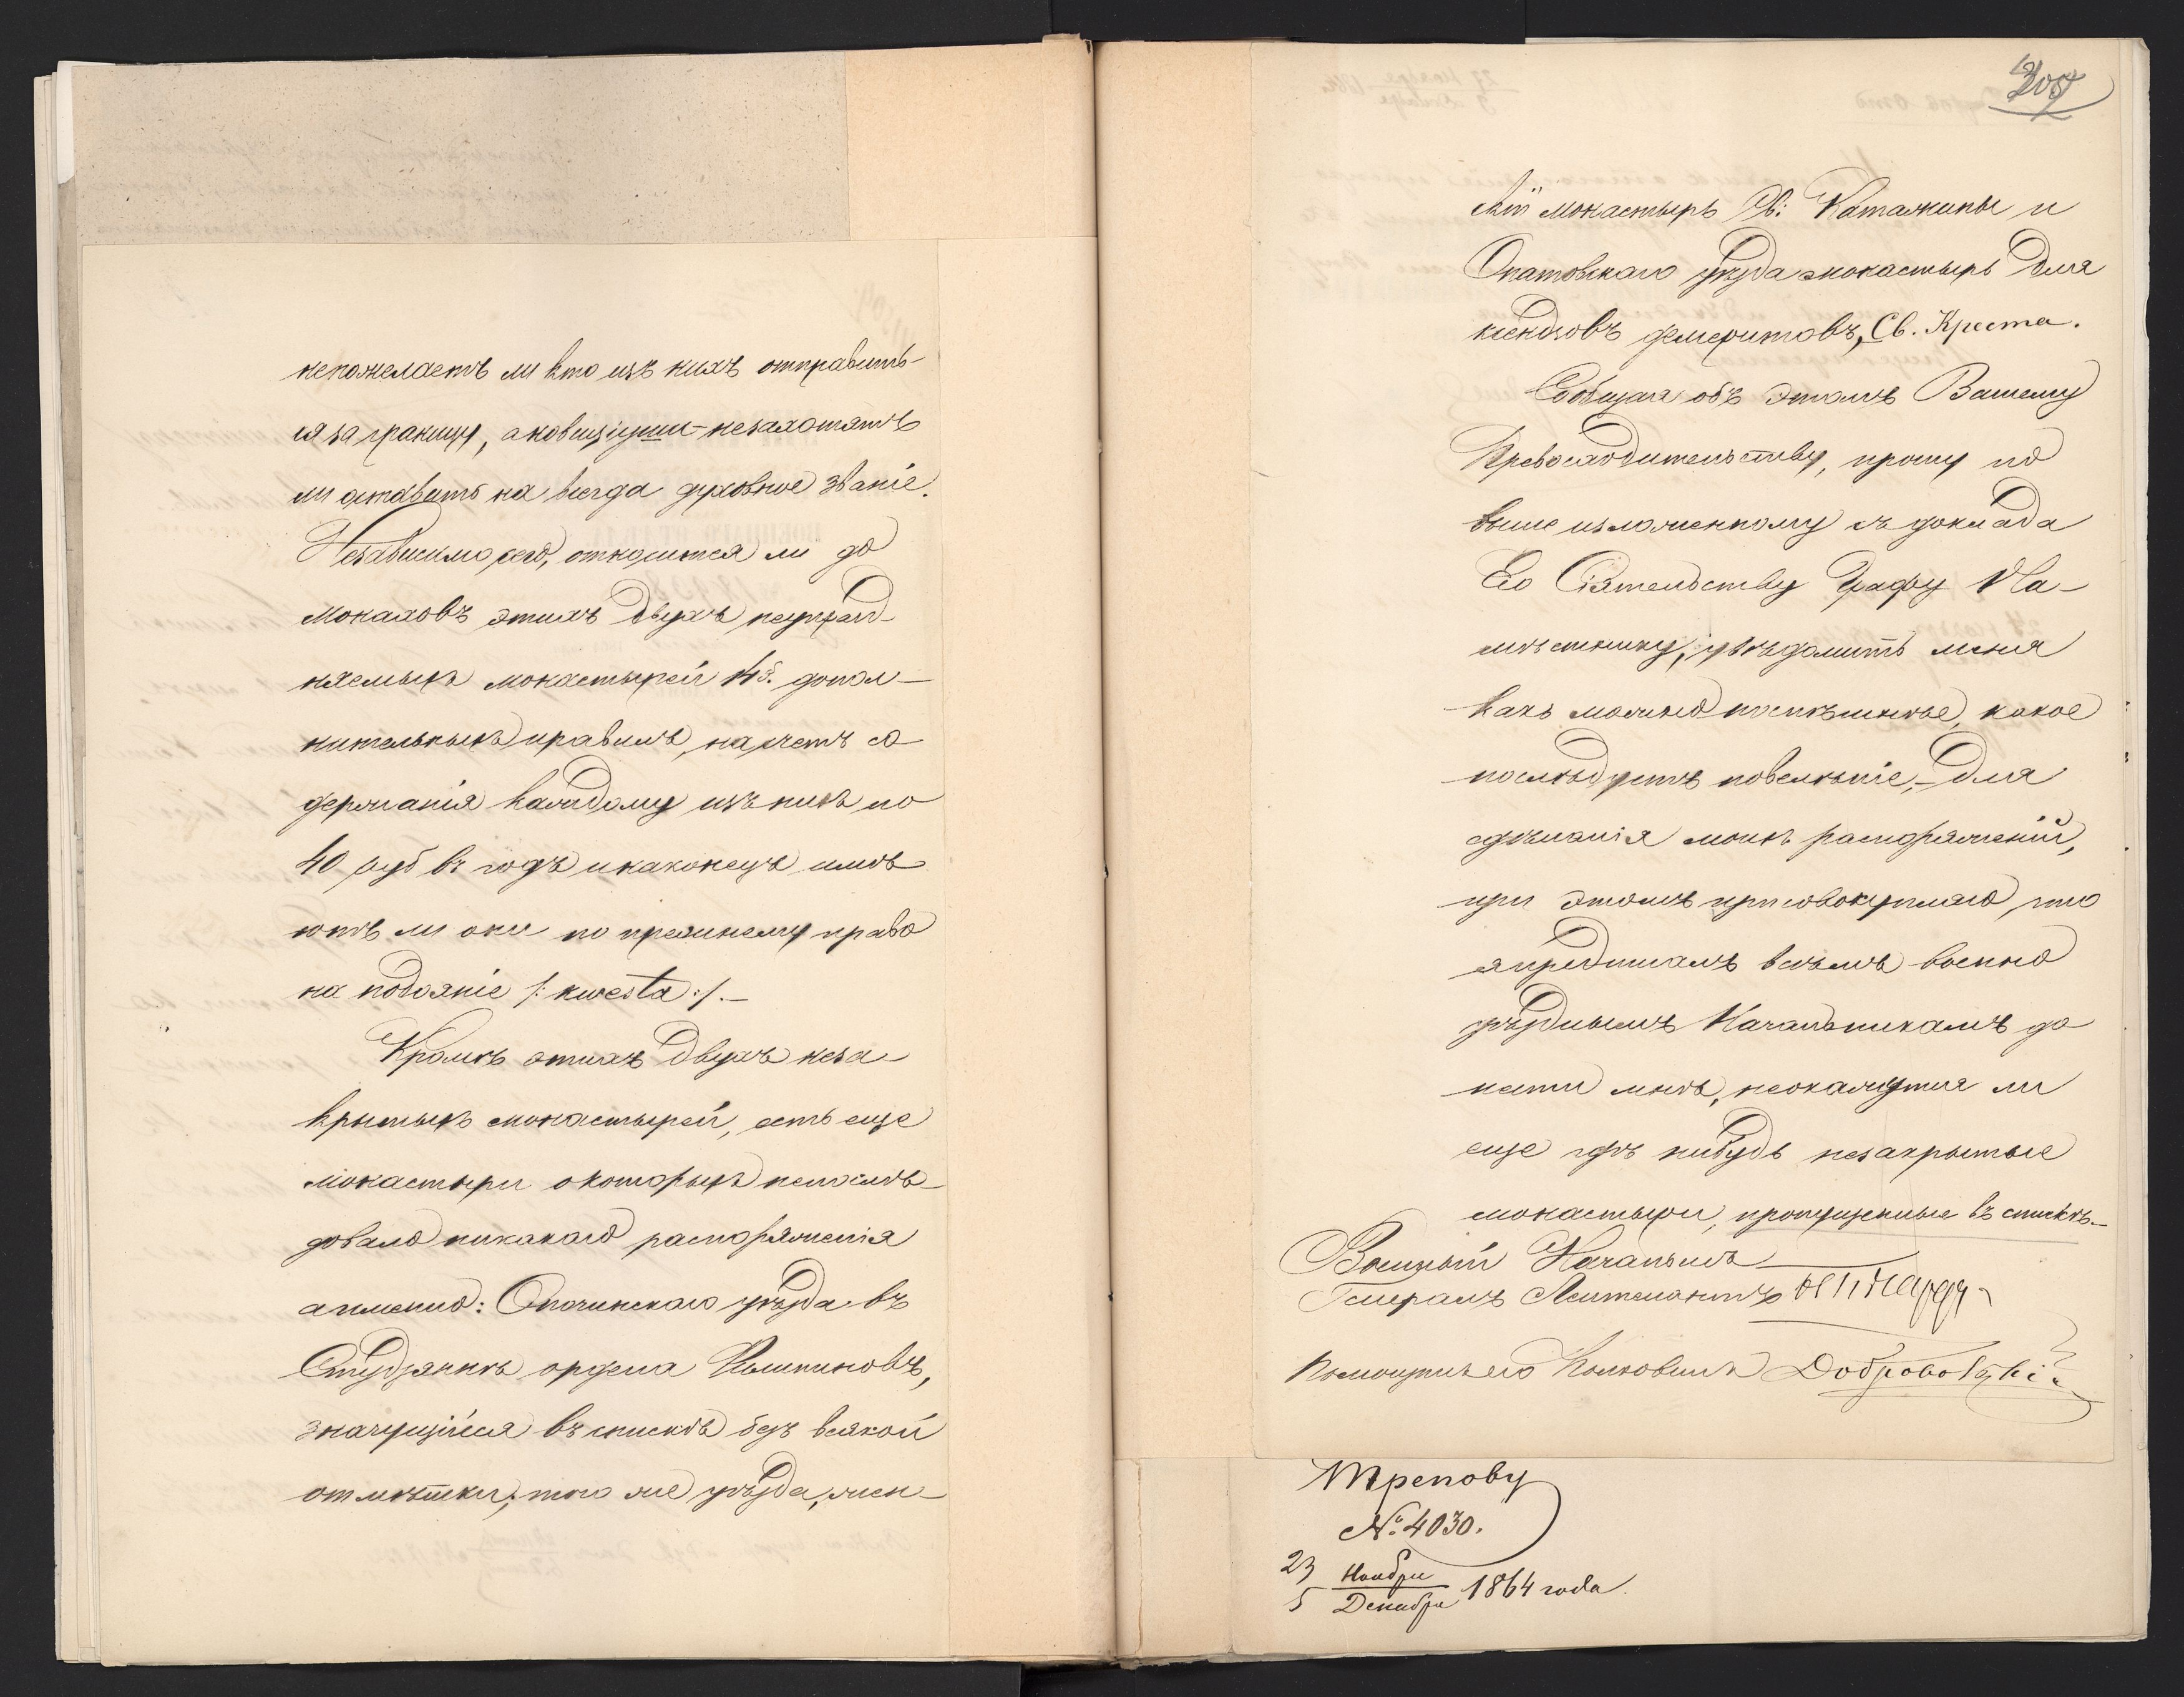 непожелаетъ ли кто изъ нихъ отправить-
ся за границу, а новиціуши незахотятъ
ли оставить на всегда духовное званіе.
Независимо сего, относится ли до
монаховъ этихъ двухъ неупразд-
няемыхъ монастырей 45. допол-
нительныхъ правилъ, на счетъ со
держанія каждому изъ нихъ по
40 руб въ годъ и наконецъ имѣ
ютъ ли они по прежнему право
на подояніе /: kwesta :/. —
Кромѣ этихъ двухъ неза-
крытыхъ монастырей, есть еще
монастыри о которыхъ непослѣ-
довало никакого распоряженія
а именно: Опочинскаго уѣзда въ
Студзяннѣ ордена Филипиновъ,
значущійся въ спискѣ безъ всякой
отмѣтки; того же уѣзда, жен-
205
скій монастырь Св: Катажины и
Опатовскаго уѣзда монастырь для
ксендзовъ демеритовъ, Св. Креста.
Сообщая объ этомъ Вашему
Превосходительству, прошу по
выше изложенному съ доклада
Его Сіятельству Графу На-
мѣстнику, увѣдомить меня
какъ можно поспѣшнѣе, какое
послѣдуетъ повелѣніе, для
сдѣланія моихъ распоряженій,
при этомъ присовокупляю, что
я предписалъ всѣмъ военно
уѣзднымъ Начальникамъ до
нести мнѣ, неокажутся ли
еще гдѣ нибудь незакрытые
монастыри, пропущенные въ спискѣ. —
Военный Начальникъ
Генералъ Лейтенантъ
Помощникъ его Полковникъ Добровольскій
Трепову
№ 4030.
23 Ноября
5 Декабря 1864 года.